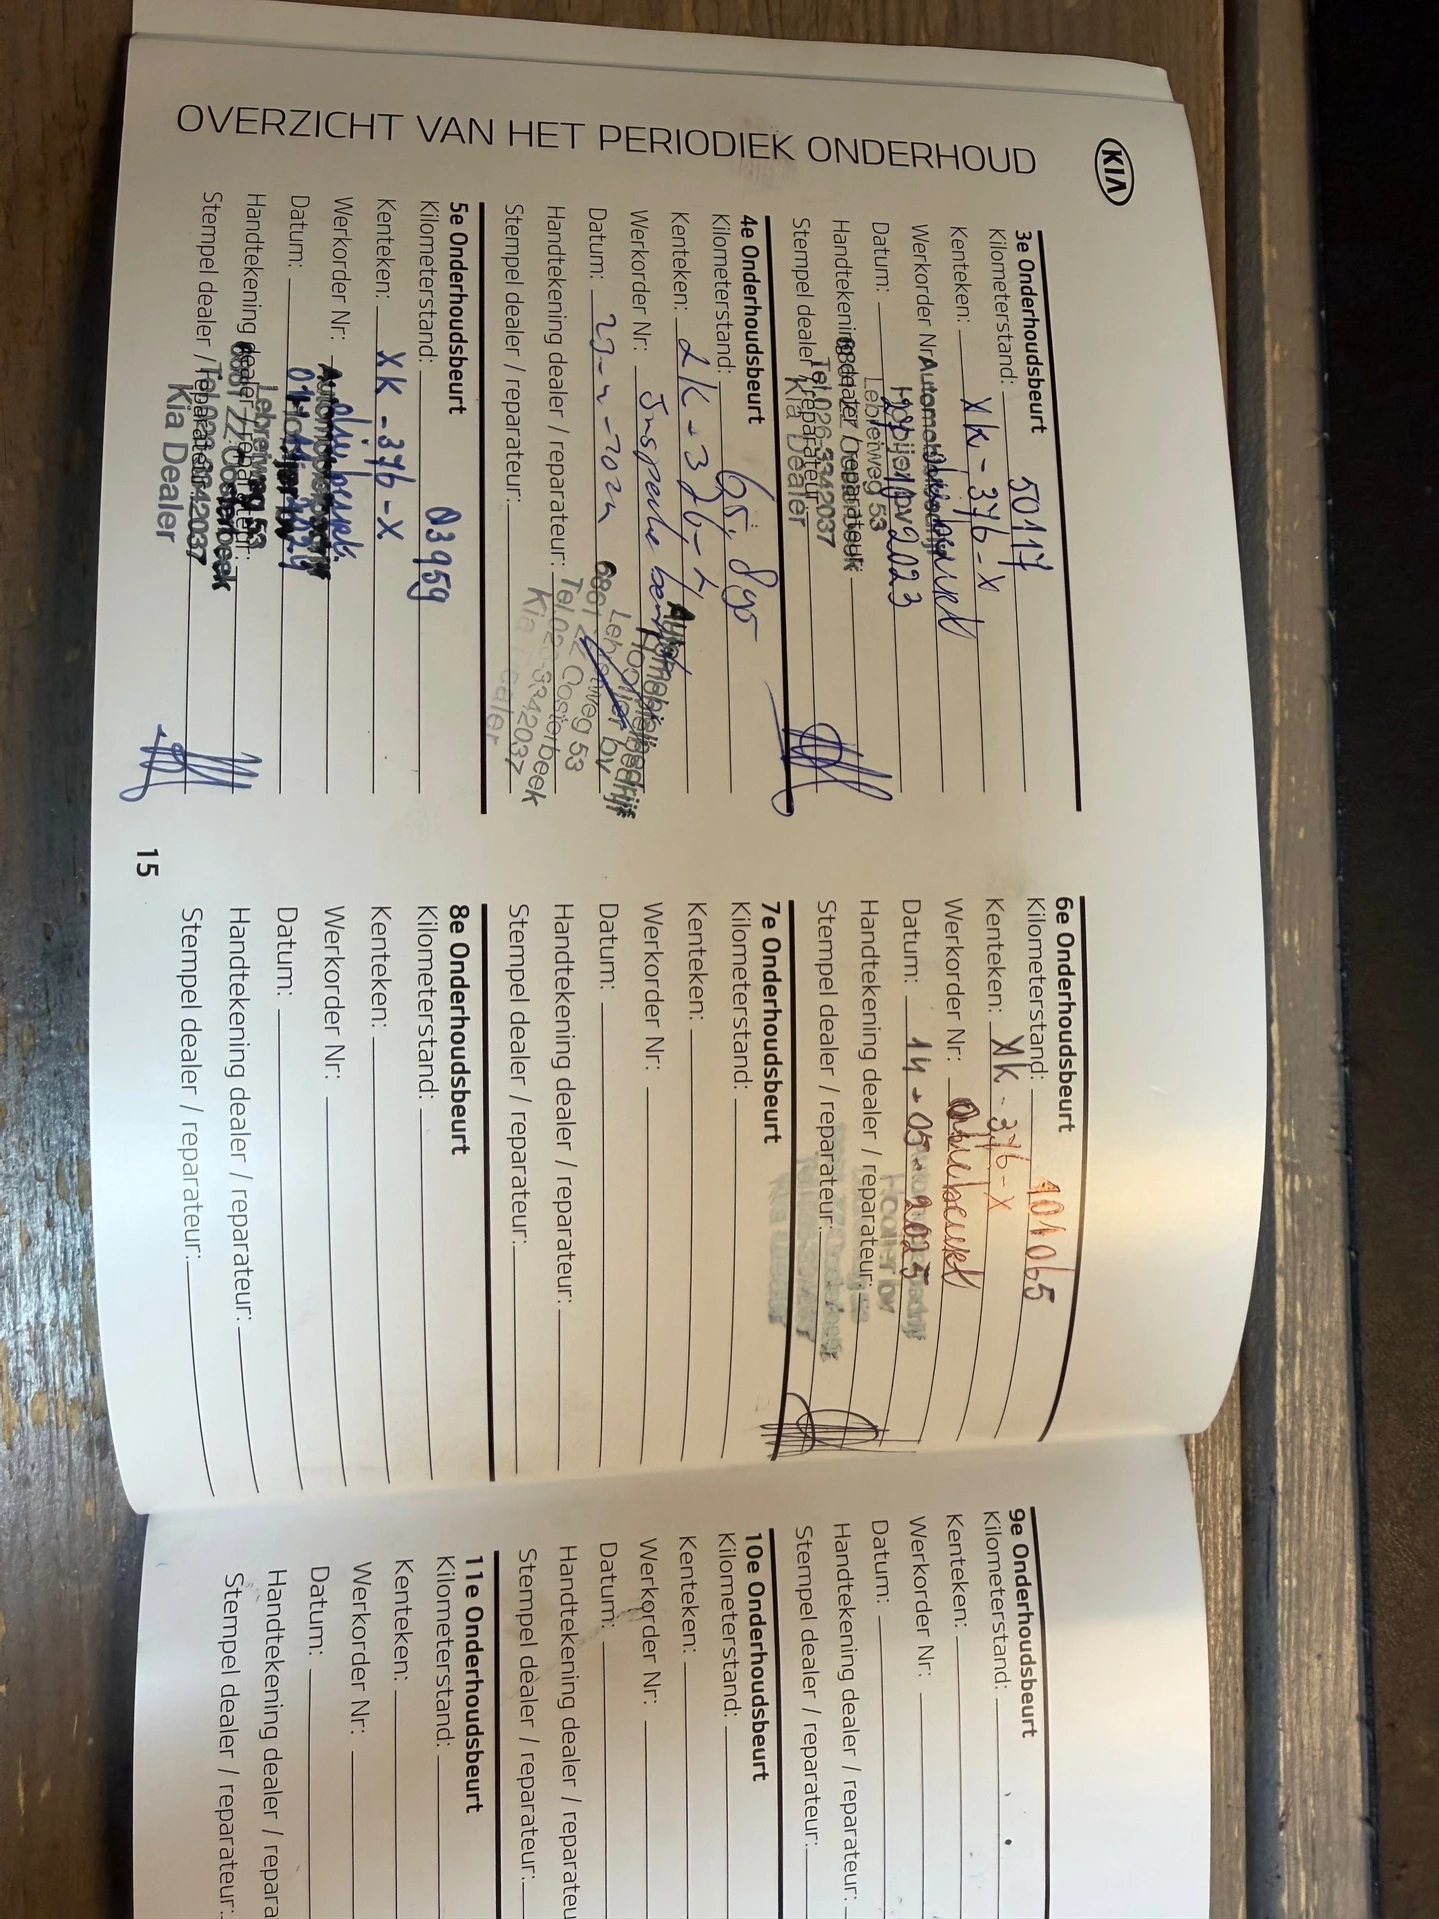 KIA
OVERZICHT VAN HET PERIODIEK ONDERHOUD
3e Onderhoudsbeurt
Kilometerstand: 50117
Kenteken: XK-376-X
Werkorder Nr
Datum: 2023
Handtekening dealer / reparateur
Stempel dealer / reparateur
Automobielbedrijf
Hooijer bv
Lebretweg 53
Tel.026-3342037
Kia Dealer
4e Onderhoudsbeurt
Kilometerstand: 65,890
Kenteken:
Werkorder Nr: Inspectie beurt
Datum:
Handtekening dealer / reparateur:
Stempel dealer / reparateur:
Automobielbedrijf
Hooijer bv
Lebretweg 53
6861 ZZ Oosterbeek
Tel.026-3342037
Kia Dealer
5e Onderhoudsbeurt
Kilometerstand: 83959
Kenteken: XK-376-X
Werkorder Nr:
Datum:
Handtekening dealer / reparateur:
Stempel dealer / reparateur
Automobielbedrijf
Hooijer bv
Lebretweg 53
6861 ZZ Oosterbeek
Tel.026-3342037
Kia Dealer
6e Onderhoudsbeurt
Kilometerstand: 101065
Kenteken: XK-376-X
Werkorder Nr: oliebeurt
Datum: 14-05-2025
Handtekening dealer / reparateur:
Stempel dealer / reparateur:
7e Onderhoudsbeurt
Kilometerstand:
Kenteken:
Werkorder Nr:
Datum:
Handtekening dealer / reparateur:
Stempel dealer / reparateur:
8e Onderhoudsbeurt
Kilometerstand:
Kenteken:
Werkorder Nr:
Datum:
Handtekening dealer / reparateur:
Stempel dealer / reparateur:
15
9e Onderhoudsbeurt
Kilometerstand:
Kenteken:
Werkorder Nr:
Datum:
Handtekening dealer / reparateur:
Stempel dealer / reparateur:
10e Onderhoudsbeurt
Kilometerstand:
Kenteken:
Werkorder Nr:
Datum:
Handtekening dealer / reparateu
Stempel dealer / reparateur:
11e Onderhoudsbeurt
Kilometerstand:
Kenteken:
Werkorder Nr:
Datum:
Handtekening dealer / repara
Stempel dealer / reparateur: